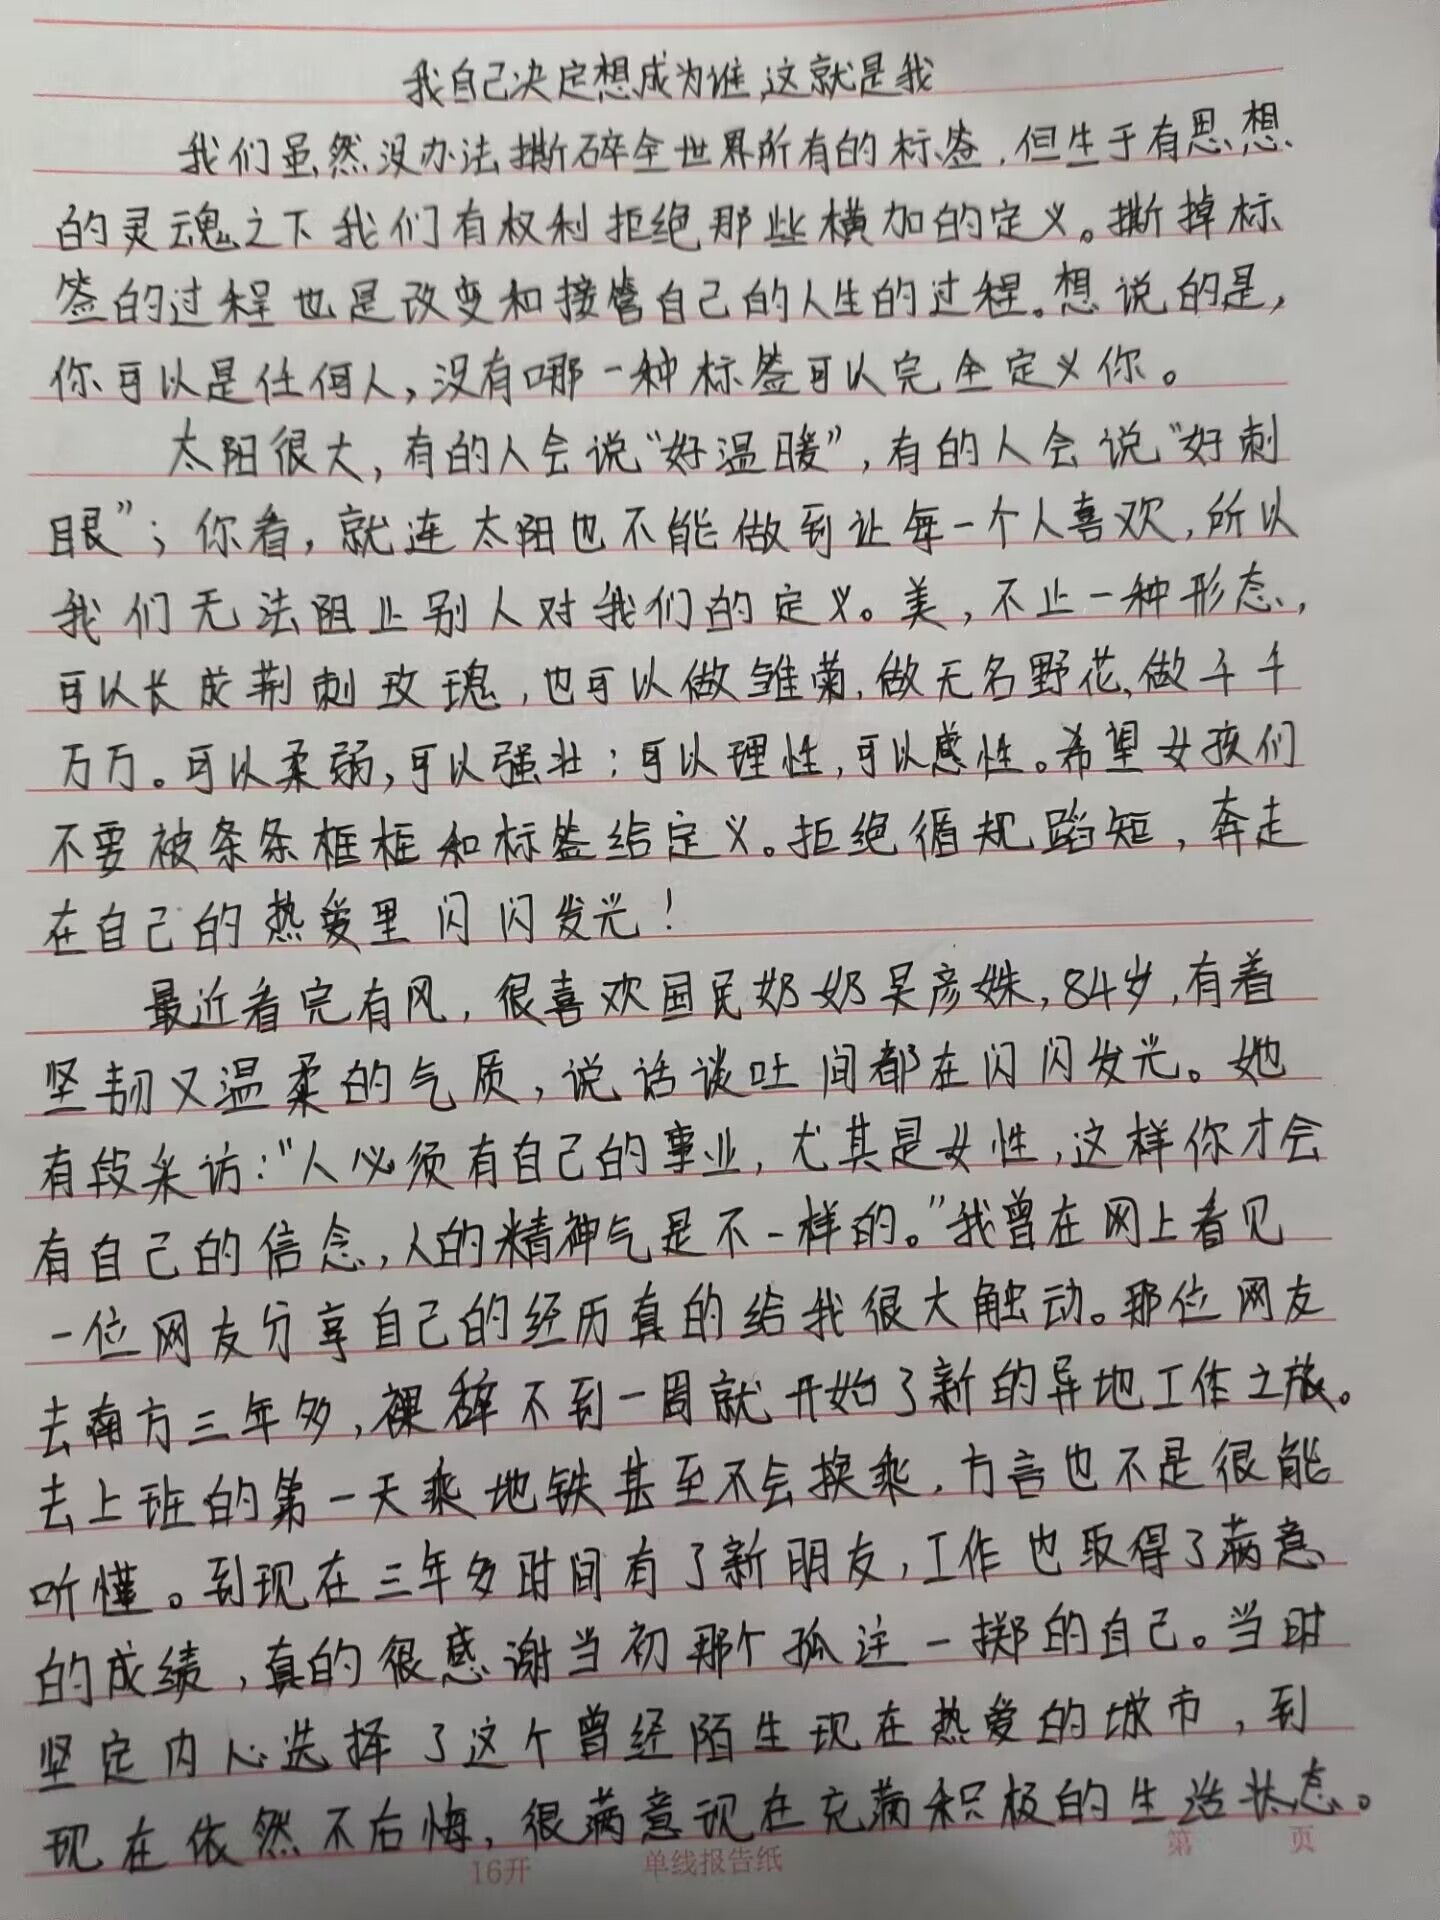 我自己决定想成为谁,这就是我
我们虽然没办法撕碎全世界所有的标签,但生于有思想
的灵魂之下我们有权利拒绝那些横加的定义。撕掉标
签的过程也是改变和接管自己的人生的过程。想说的是,
你可以是任何人,没有哪一种标签可以完全定义你。
太阳很大,有的人会说“好温暖”,有的人会说“好刺
眼”;你看,就连太阳也不能做到让每一个人喜欢,所以
我们无法阻止别人对我们的定义。美,不止一种形态,
可以长成荆刺玫瑰,也可以做雏菊,做无名野花,做千千
万万。可以柔弱,可以强壮;可以理性,可以感性。希望女孩们
不要被条条框框和标签给定义。拒绝循规蹈矩,奔走
在自己的热爱里闪闪发光!
最近看完有风,很喜欢国民奶奶吴彦姝,84岁,有着
坚韧又温柔的气质,说话谈吐间都在闪闪发光。她
有段采访:“人必须有自己的事业,尤其是女性,这样你才会
有自己的信念,人的精神气是不一样的。”我曾在网上看见
一位网友分享自己的经历真的给我很大触动。那位网友
去南方三年多,裸辞不到一周就开始了新的异地工作之旅。
去上班的第一天乘地铁甚至不会换乘,方言也不是很能
听懂。到现在三年多时间有了新朋友,工作也取得了满意
的成绩,真的很感谢当初那个孤注一掷的自己。当时
坚定内心选择了这个曾经陌生现在热爱的城市,到
现在依然不后悔,很满意现在充满积极的生活状态。
16开 单线报告纸 第 页